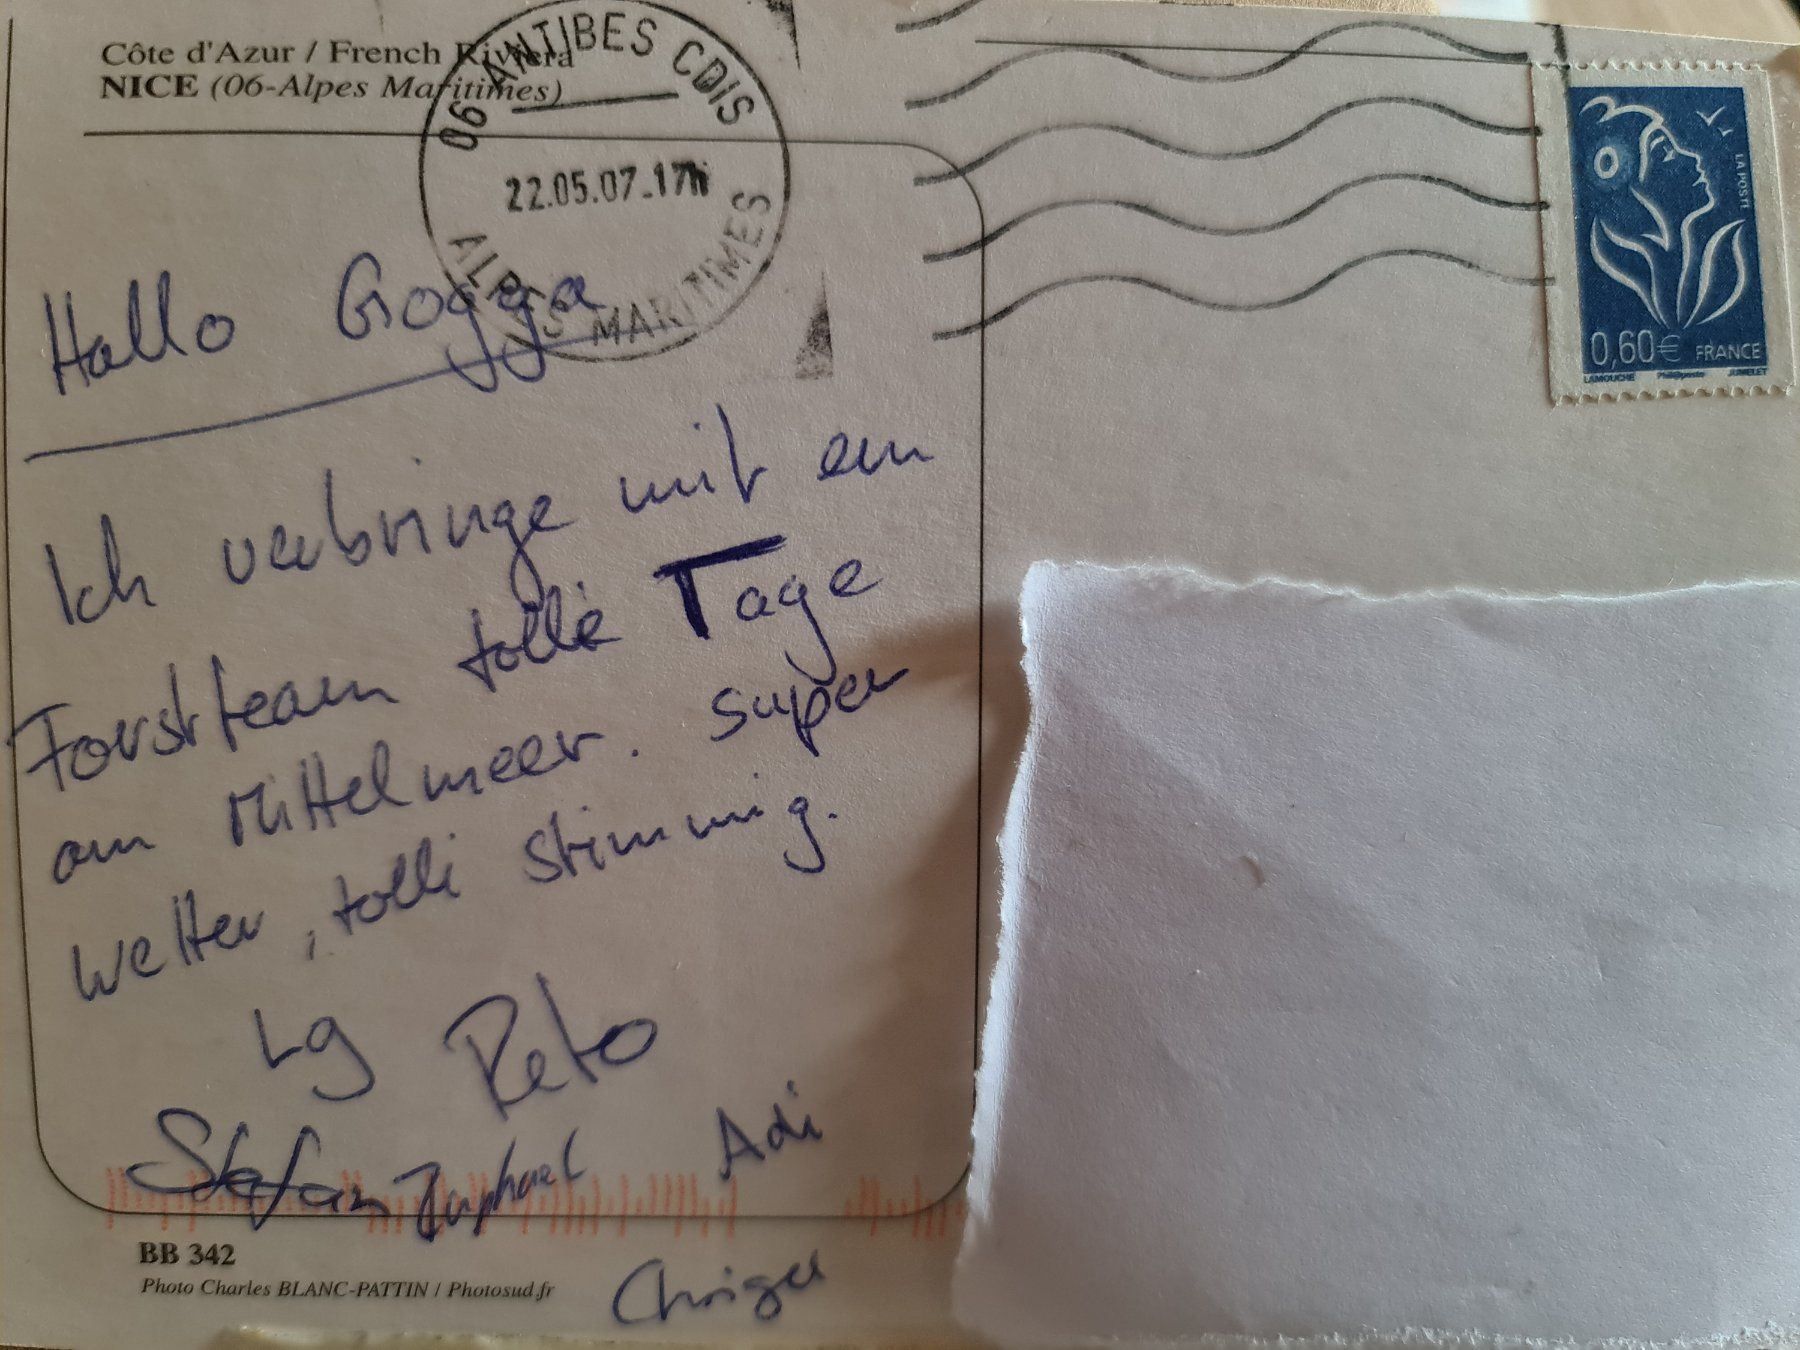 Côte d'Azur / French Riviera
NICE (06-Alpes Maritimes)
06 ANTIBES CDIS
22.05.07-17h
ALPES MARITIMES
LA POSTE
0,60€ FRANCE
LAMOUCHE Phil@poste JUMELET
Hallo Gogga
Ich verbringe mit em
Forstteam tolli Tage
am Mittelmeer. super
Wetter, tolli stimmig.
Lg Reto
Stefan Raphael Adi
Chrigu
BB 342
Photo Charles BLANC-PATTIN / Photosud.fr